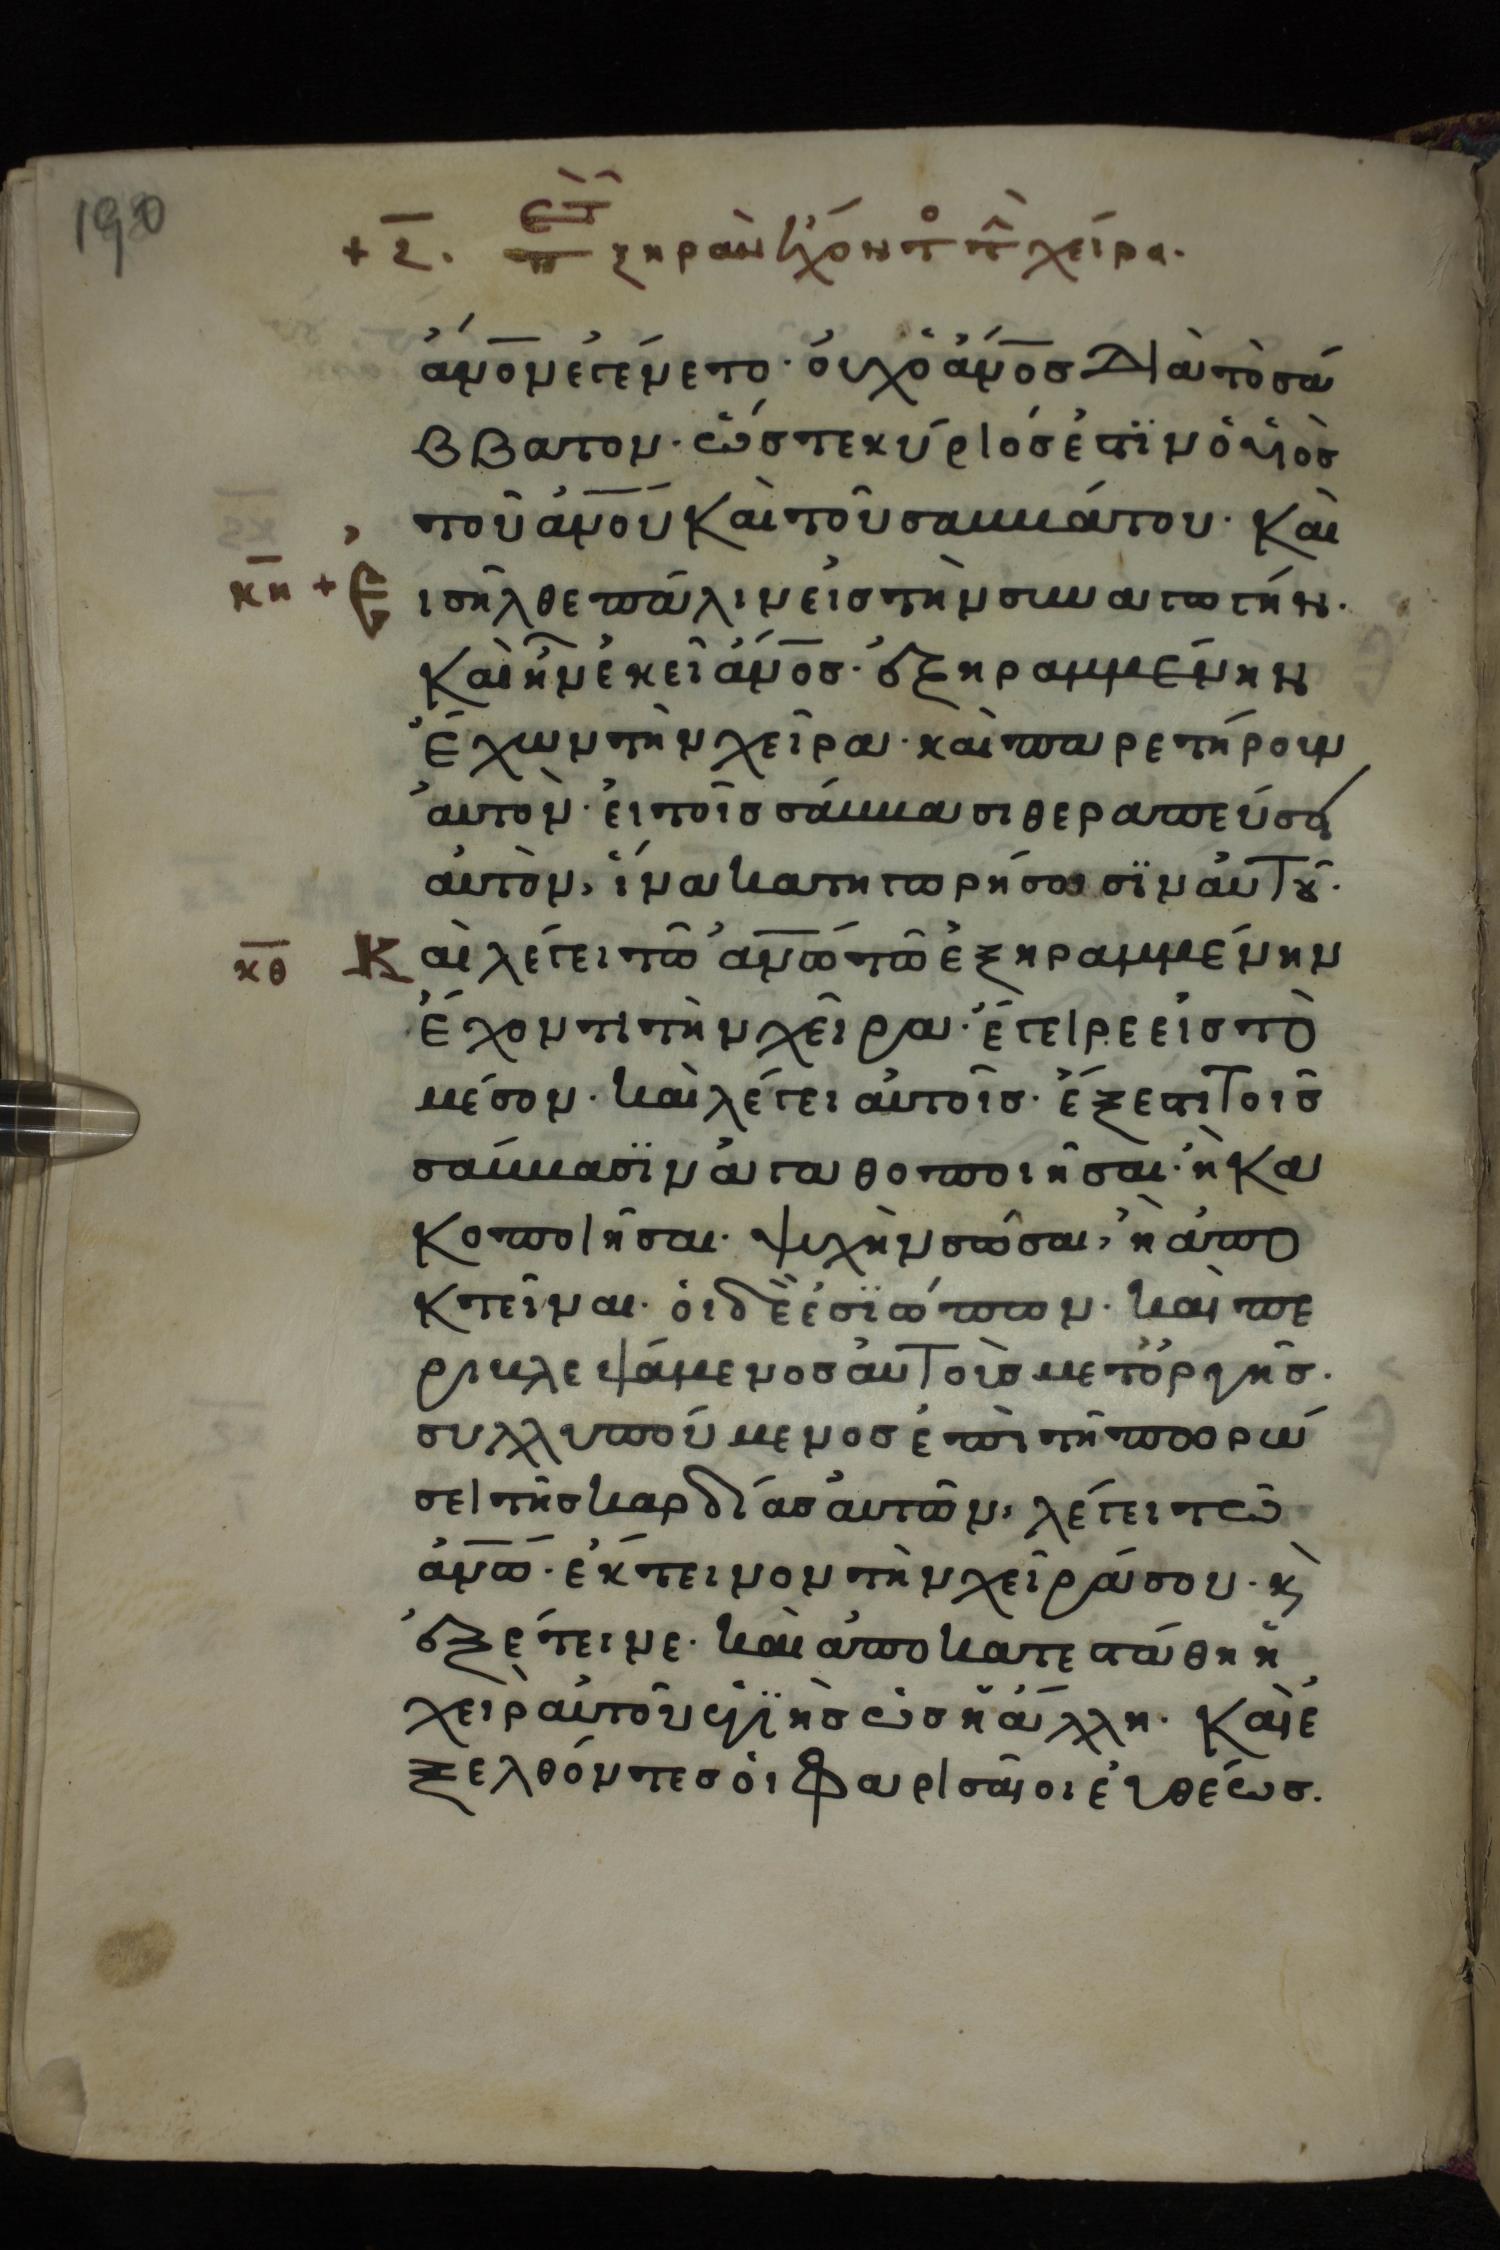 190
+ ϛ̅. περὶ τοῦ ξηρὰν ἔχόντος τὴν χείρα.
ἄν̅ον ἐγένετο· οὐχ ὁ ἄν̅οσ διὰ τὸ σά
ββατον· ὥστε κύριόσ ἐστϊν ὁ ὑιὸσ
τοῦ ἀν̅ού καὶ τοῦ σαββάτου· Καὶ
κ̅η + Ἐ ισῆλθε πάλιν εἰσ τὴν συναγωγήν.
Καὶ ἦν ἐκεῖ ἄν̅οσ· ἐξηραμμένην
ἔχων τὴν χεῖρα· καὶ παρετήρουν
ἀυτὸν· ἐι τοῖσ σάββασι θεραπεύσει
ἀυτὸν, ἵνα κατηγορήσωσϊν ἀυτοῦ.
κ̅θ Κ αὶ λέγει τῶ ἀν̅ώ τῶ ἐξηραμμένην
ἔχοντι τὴν χεῖρα· ἔγειρε εἰσ τὸ
μέσον· καὶ λέγει ἀυτοῖσ· ἔξεστι τοῖσ
σάββασϊν ἀγαθοποιῆσαι· ἢ κα
κοποιῆσαι· ψυχὴν σῶσαι, ἢ ἀπο
κτεῖναι· ὁι δὲ ἐσϊώπων· καὶ πε
ριβλεψάμενοσ ἀυτοὺσ μετ' ὀργῆσ.
συλλυπούμενοσ ἐπὶ τῆ πορώ
σει τῆσ καρδίασ ἀυτῶν, λέγει τῶ
ἀν̅ώ· ἔκτεινον τὴν χεῖρά σου· κὶ
ἐξέτεινε· καὶ ἀποκατεστάθη ἡ
χεὶρ ἀυτοῦ ὑγϊὴσ ὡσ ἡ ἄλλη· Καὶ ἐ
ξελθόντεσ ὁι Φαρισαῖοι ἐυθέωσ.